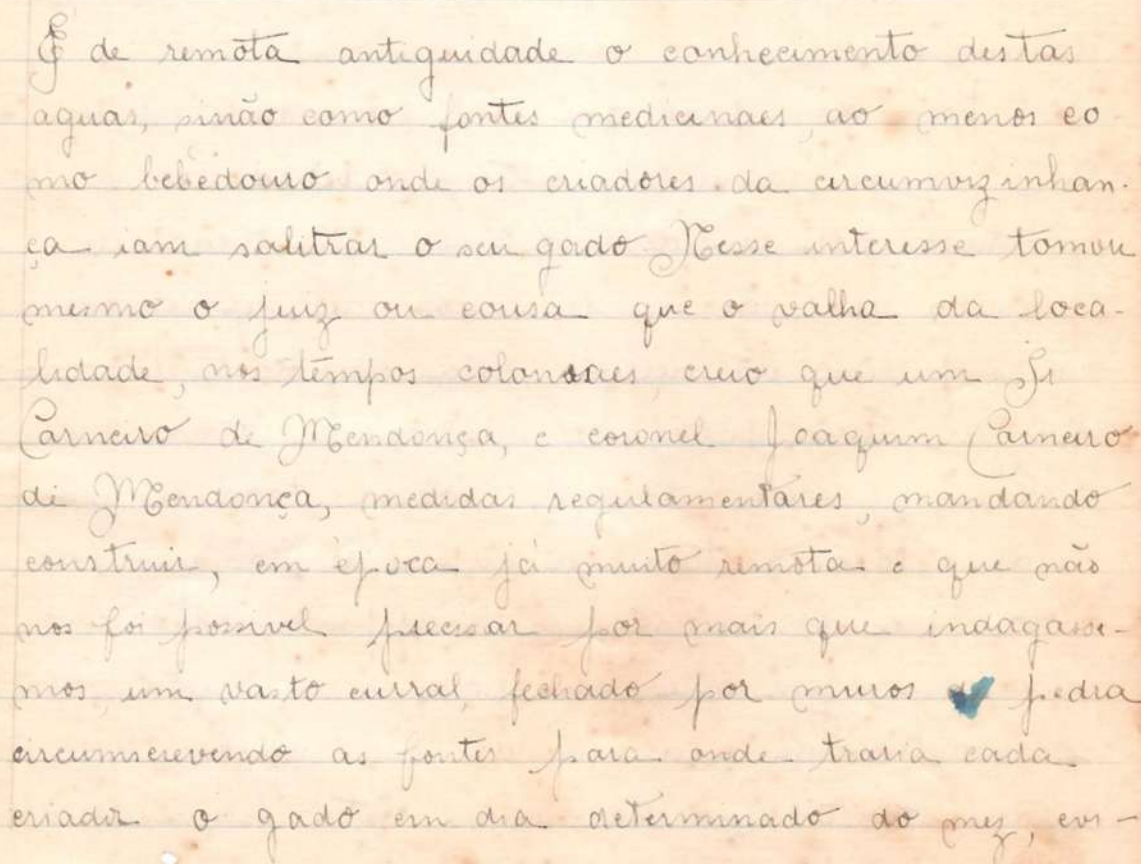 É de remota antiguidade o conhecimento destas
aguas, sinão como fontes medicinaes, ao menos co
mo bebedouro onde os criadores da circumvizinhan-
ça iam salitrar o seu gado Nesse interesse tomou
mesmo o juiz ou cousa que o valha da loca-
lidade, nos tempos coloniaes, creio que um Sr
Carneiro de Mendonça, e coronel Joaquim Carneiro
de Mendonça, medidas regulamentares, mandando
construir, em época já muito remota e que não
nos foi possivel precisar por mais que indagasse-
mos, um vasto curral, fechado por muros de pedra
circumscrevendo as fontes para onde traria cada
criador o gado em dia determinado do mez, evi-